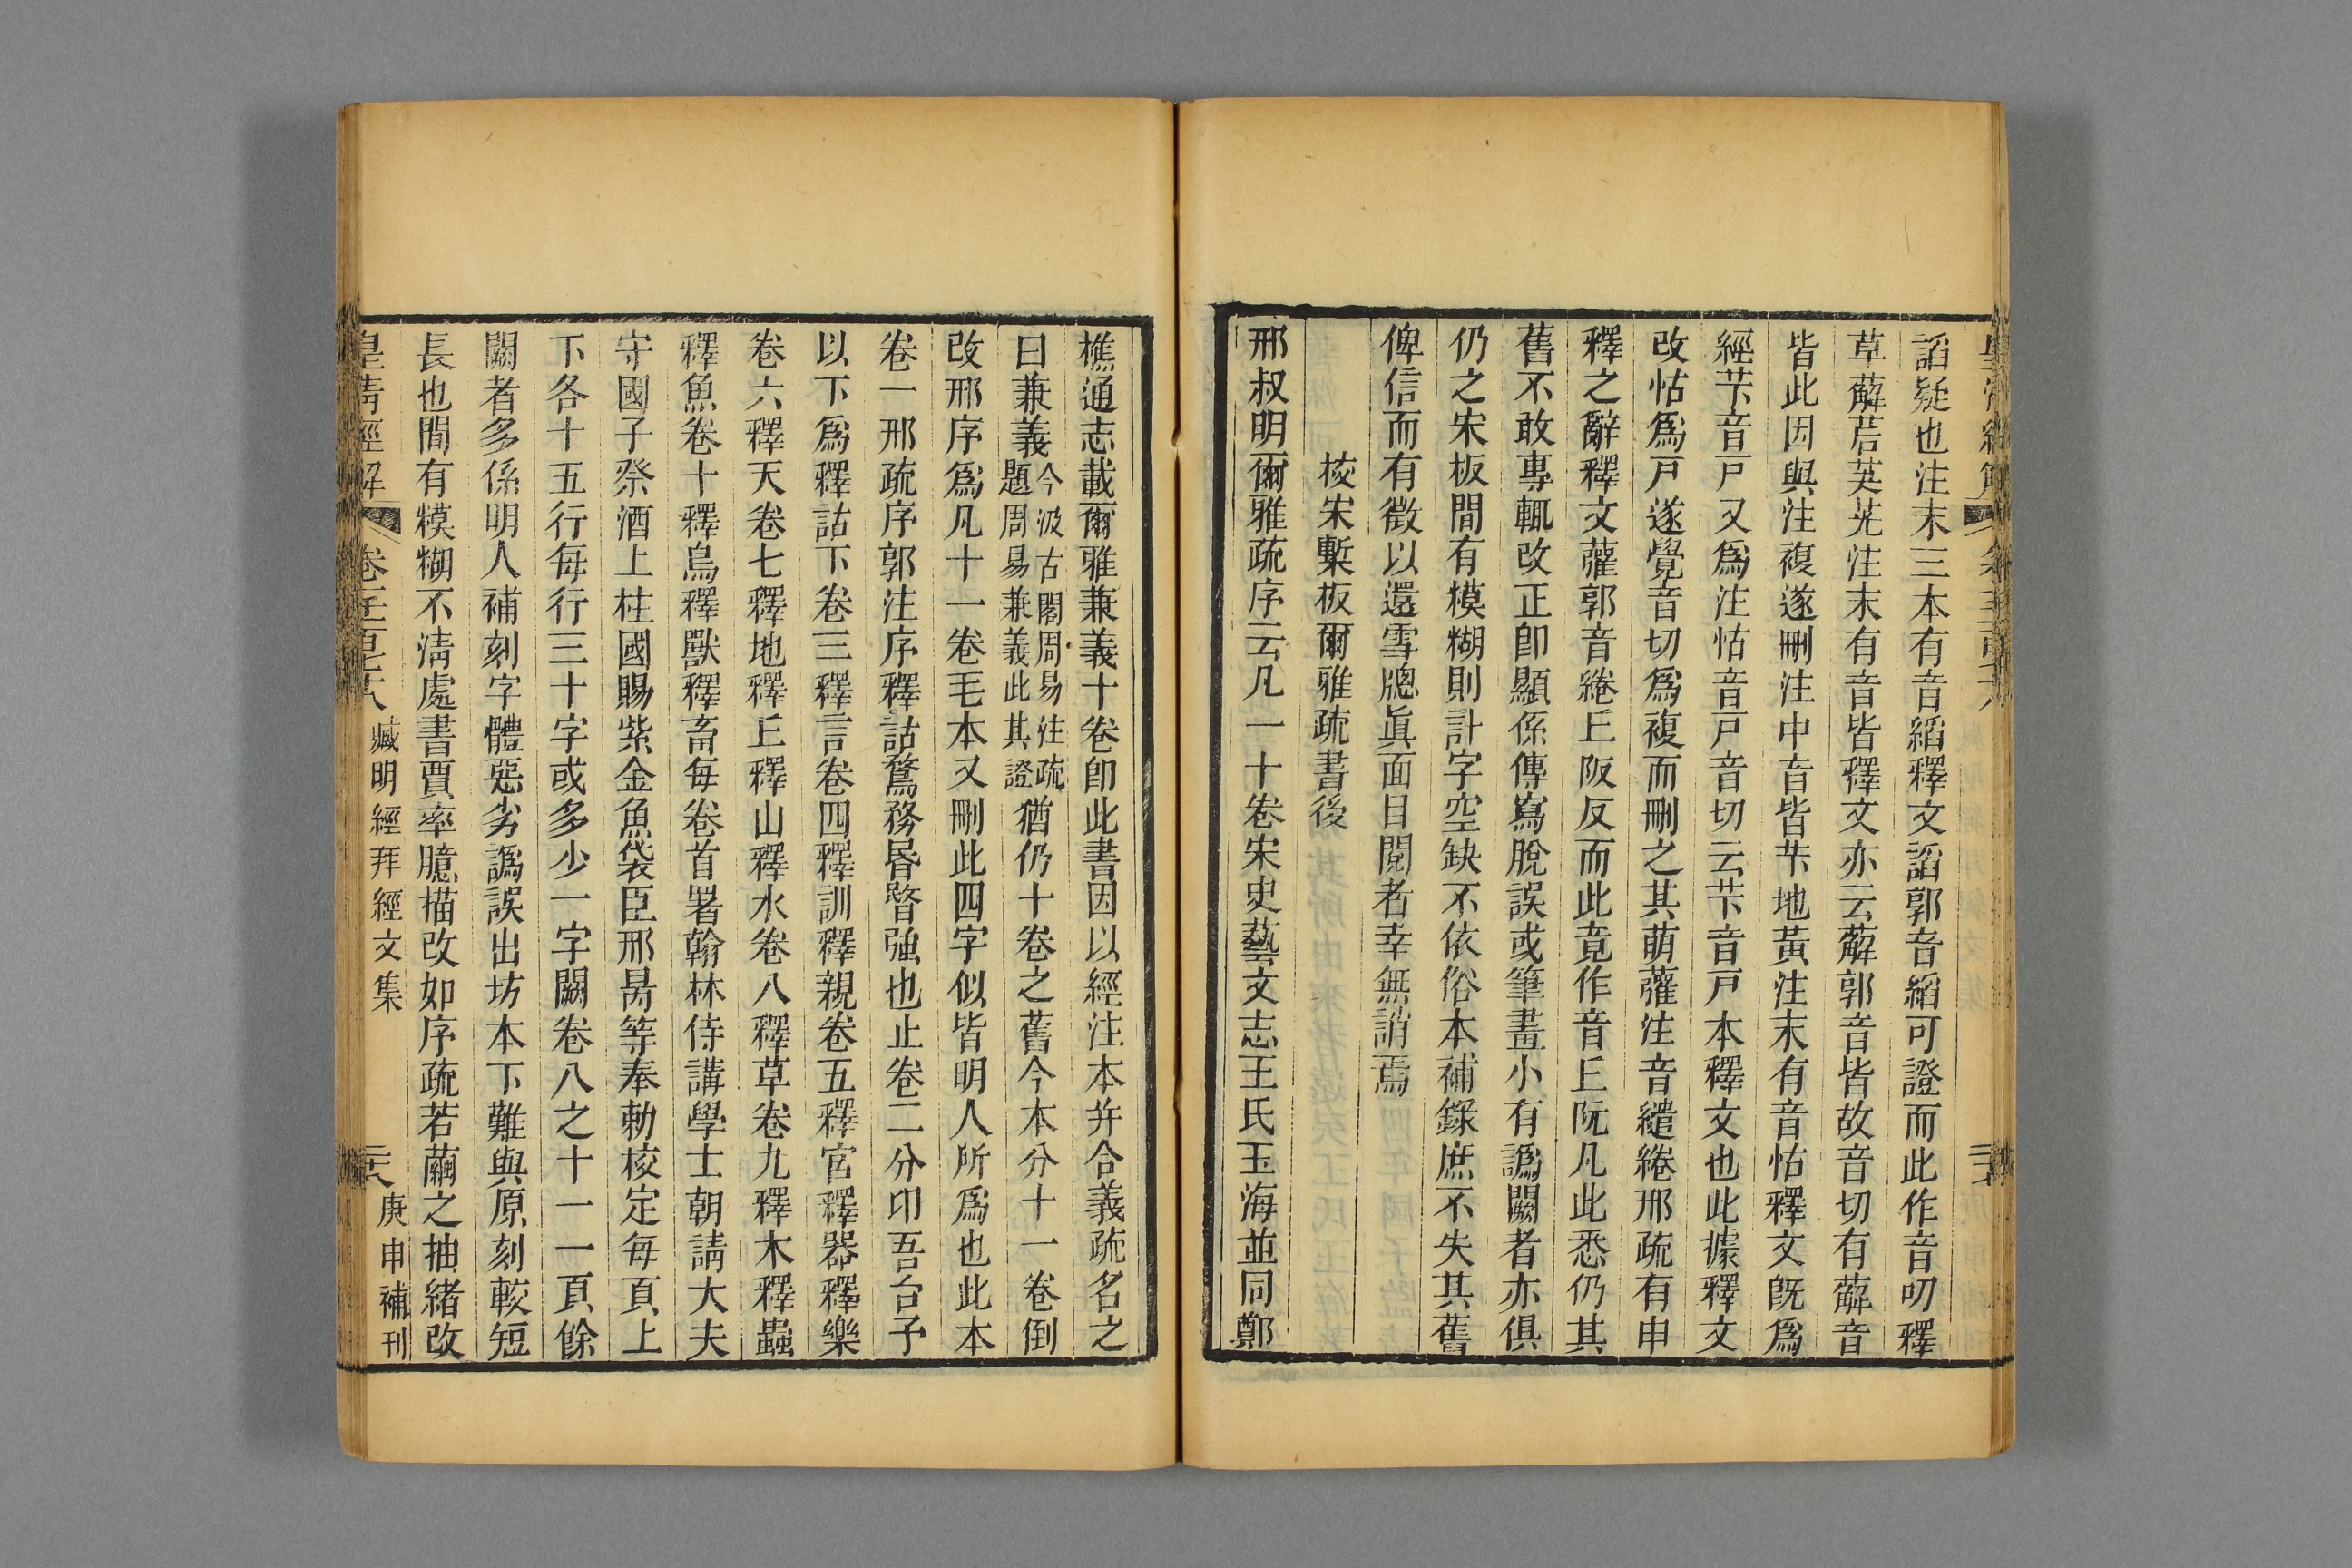 謟疑也注末三本有音縚釋文謟郭音縚可證而此作音叨釋
草薢茩英茪注末有音皆釋文亦云薢郭音皆故音切有薢音
皆此因與注複遂刪注中音皆芐地黃注末有音怙釋文旣爲
經芐音戸又爲注怙音戸音切云芐音戸本釋文也此據釋文
改怙爲戸遂覺音切爲複而刪之其萌虇注音繾綣邢疏有申
釋之辭釋文虇郭音綣丘阪反而此竟作音丘阮凡此悉仍其
舊不敢專輒改正卽顯係傳寫脫誤或筆畫小有譌闕者亦俱
仍之宋板間有模糊則計字空缺不依俗本補錄庶不失其舊
俾信而有徵以還雪牕眞面目閱者幸無誚焉
校宋槧板爾雅疏書後
邢叔明爾雅疏序云凡一十卷宋史藝文志王氏玉海並同鄭
樵通志載爾雅兼義十卷卽此書因以經注本幷合義疏名之
曰兼義今汲古閣周易注疏題周易兼義此其證猶仍十卷之舊今本分十一卷倒
改邢序爲凡十一卷毛本又刪此四字似皆明人所爲也此本
卷一邢疏序郭注序釋詁鶩務昬暋強也止卷二分卬吾台予
以下爲釋詁下卷三釋言卷四釋訓釋親卷五釋宮釋器釋樂
卷六釋天卷七釋地釋丘釋山釋水卷八釋草卷九釋木釋蟲
釋魚卷十釋鳥釋獸釋畜每卷首署翰林侍講學士朝請大夫
守國子祭酒上柱國賜紫金魚袋臣邢昺等奉勅校定每頁上
下各十五行每行三十字或多少一字闕卷八之十一一頁餘
闕者多係明人補刻字體惡劣譌誤出坊本下難與原刻較短
長也間有糢糊不淸處書賈率臆描改如序疏若繭之抽緒改
皇淸經解 卷 臧明經拜經文集 庚申補刊